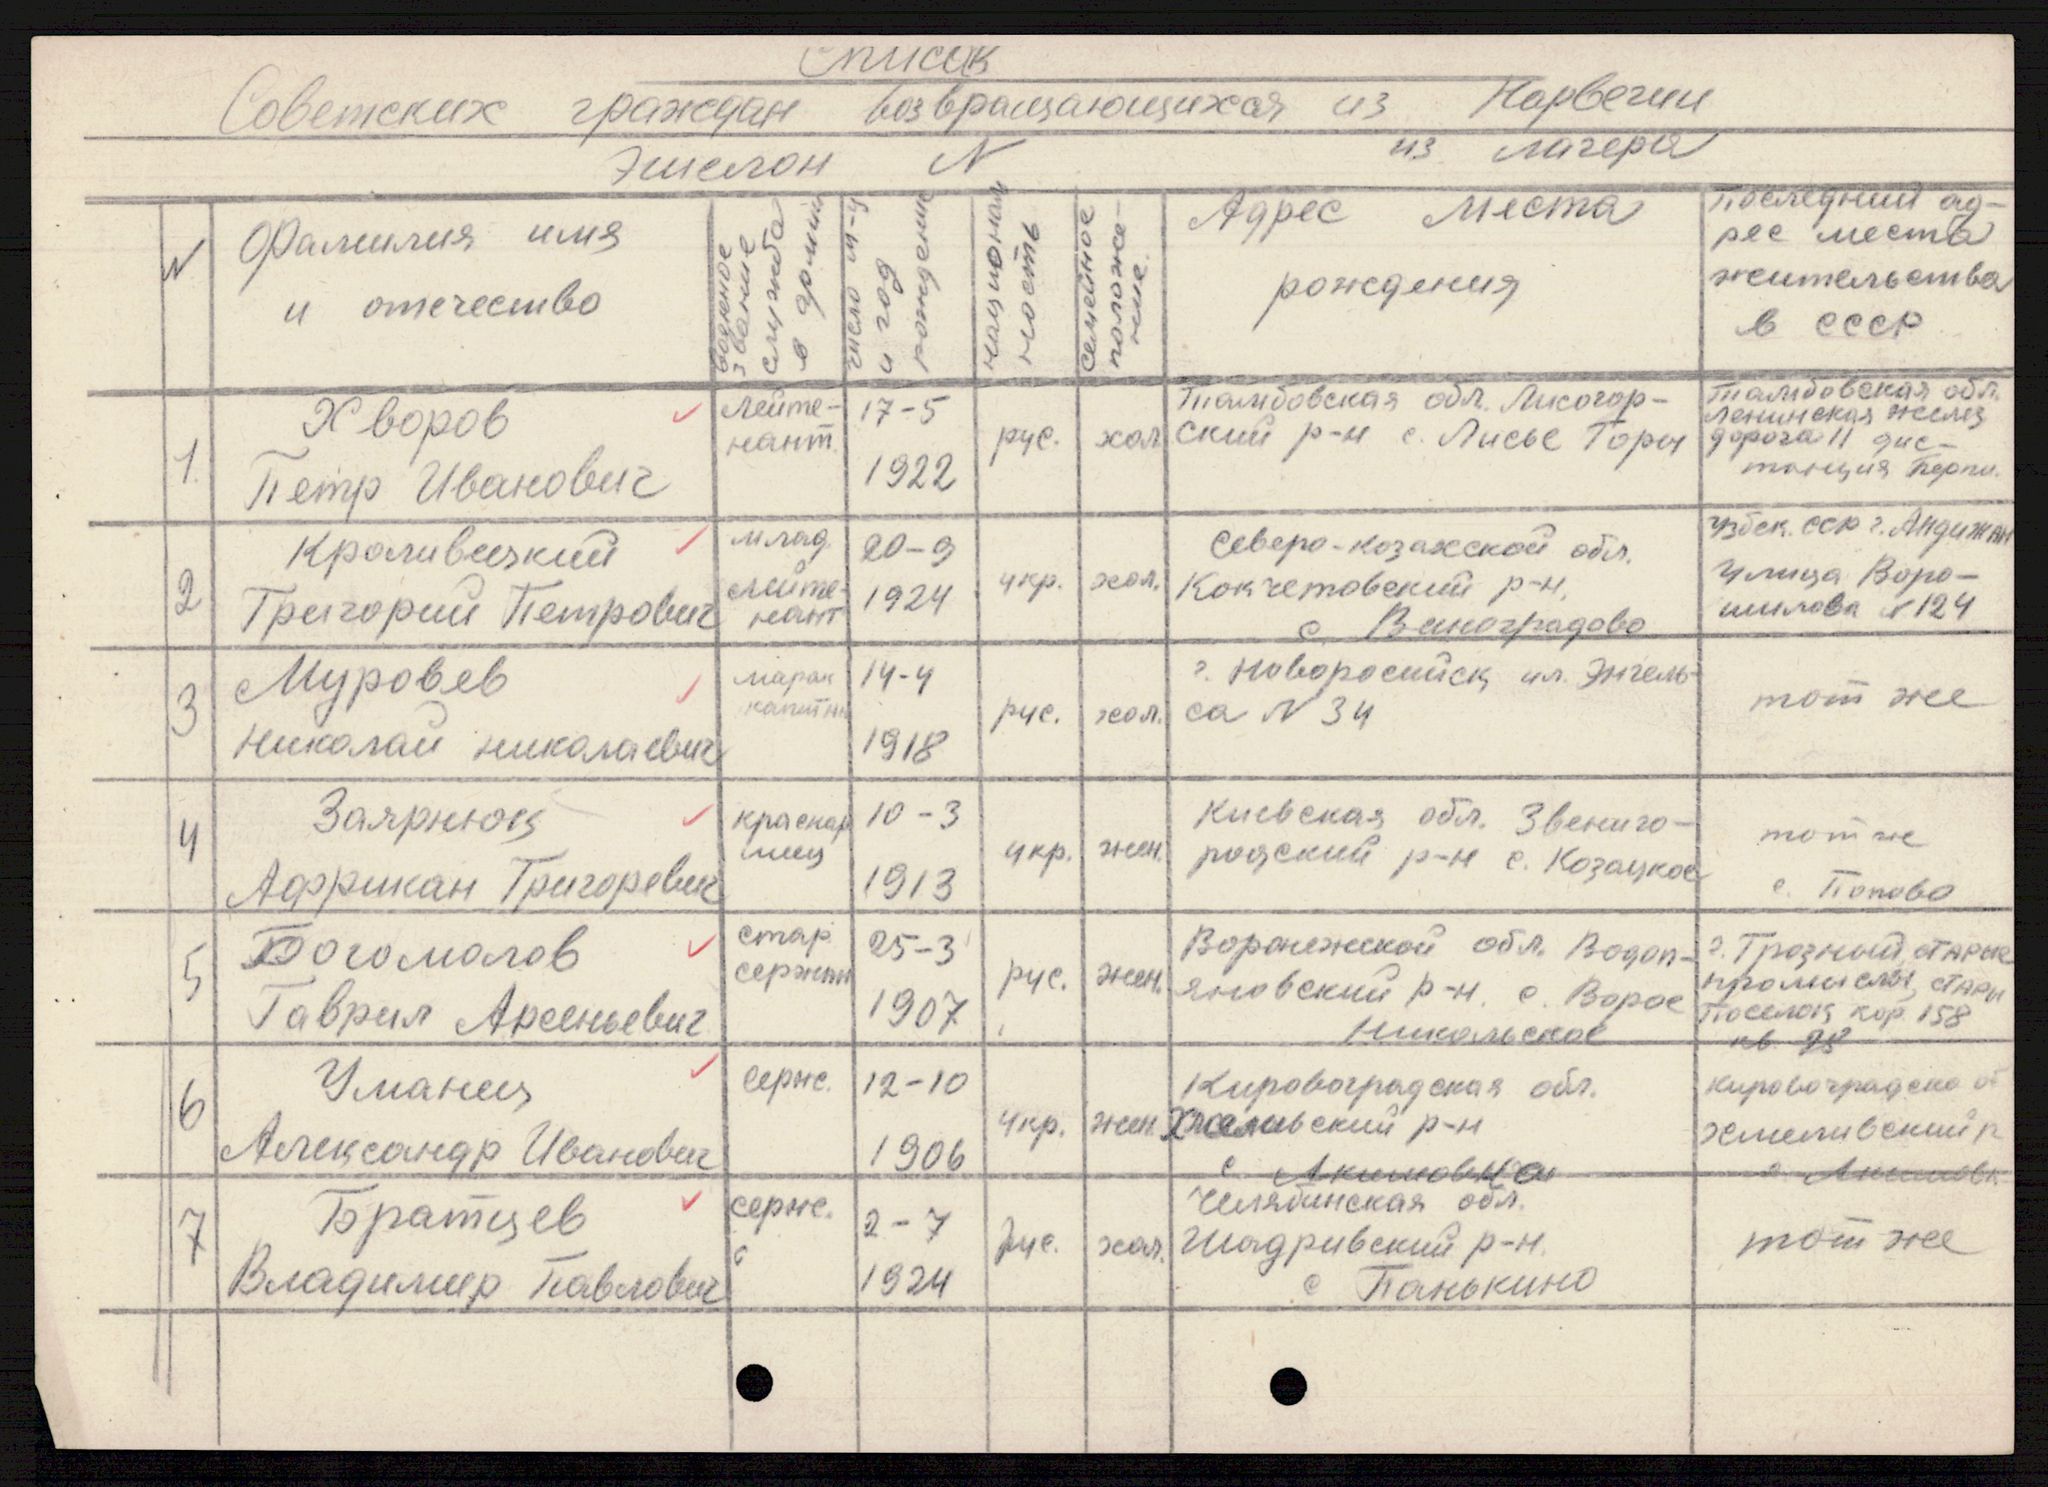 Список
Советских граждан возвращающихся из Норвегии
Эшелон N из лагеря
N
Фамилия имя
и отечество
военное
звание
служба
в армии
число м-ц
и год
рождение
национал
ность
семейное
положе-
ние.
Адрес места
рождения
Последний ад-
рес места
жительства
в СССР
1.
Хворов
Петр Иванович
лейте-
нант.
17-5
1922
рус.
хол
Тамбовская обл. Лисогор-
ский р-н с. Лисые Горы
Тамбовская обл.
Ленинская желез
дорога 11 дис-
танция
2
Кроливецкий
Григорий Петрович
млад.
лейте-
нант
20-9
1924
укр.
хол.
Северо-козахской обл.
Кокчетовский р-н.
с. Виноградово
Узбек. ССР г. Андижан
Улица Воро-
шилова N 124
3
Муровьев
Николай николаевич
капитан
14-4
1918
рус.
хол.
г. Новоросийск ул. Энгель-
са N 34
тот же
4
Заярнюк
Аффрикан Григоревич
краснар
меец
10-3
1913
укр.
жен.
Киевская обл. Звениго-
родский р-н с. Козацкое
тот же
с. Попово
5
Богомолов
Гаврил Арсеньевич
стар
сержан
25-3
1907
рус.
жен.
Воронежской обл. Водоп-
яновский р-н. с.
Никольское
г. Грозный, старые
промислы, стары
Поселок кор 158
кв. 28
6
Уманец
Александр Иванович
серж.
12-10
1906
укр.
жен
Кировоградская обл.
Хмеливский р-н
с Акимовка
Кировоградско об
Хмеливский р
с Акимовк
7
Братцев
Владимир Павлович
серж.
2-7
1924
рус.
хол.
Челябинская обл.
Шадривский р-н.
с Панькино
тот же